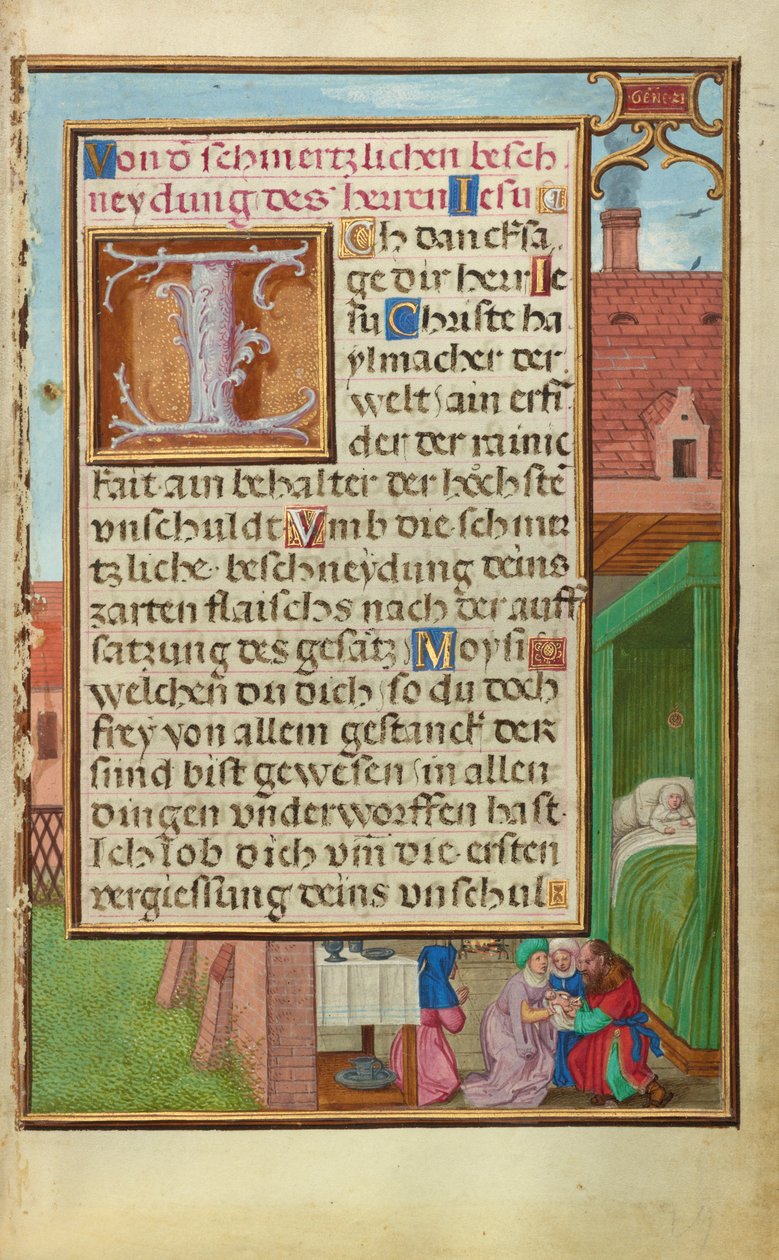 GENE·21
Von d̄ schmertzlichen besch
neydung des herren Iesu
Ich dancksa
ge dir herr Ie
su Christe ha
ylmacher der
welt ain erfī
der der rainic
kait· ain behalter der höchstē
vnschuldt Vmb die schmer
tzliche· beschneydung deins
zarten flaischs nach der auff
satzung des gesätz Moysi
welchen du dich so du doch
frey von allem gestanck der
sünd bist gewesen in allen
dingen vnderworffen hast·
Ich lob dich vm̄ die ersten
vergiessung deins vnschul